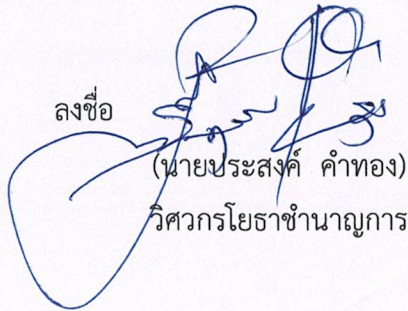 ลงชื่อ
(นายประสงค์ คำทอง)
วิศวกรโยธาชำนาญการ